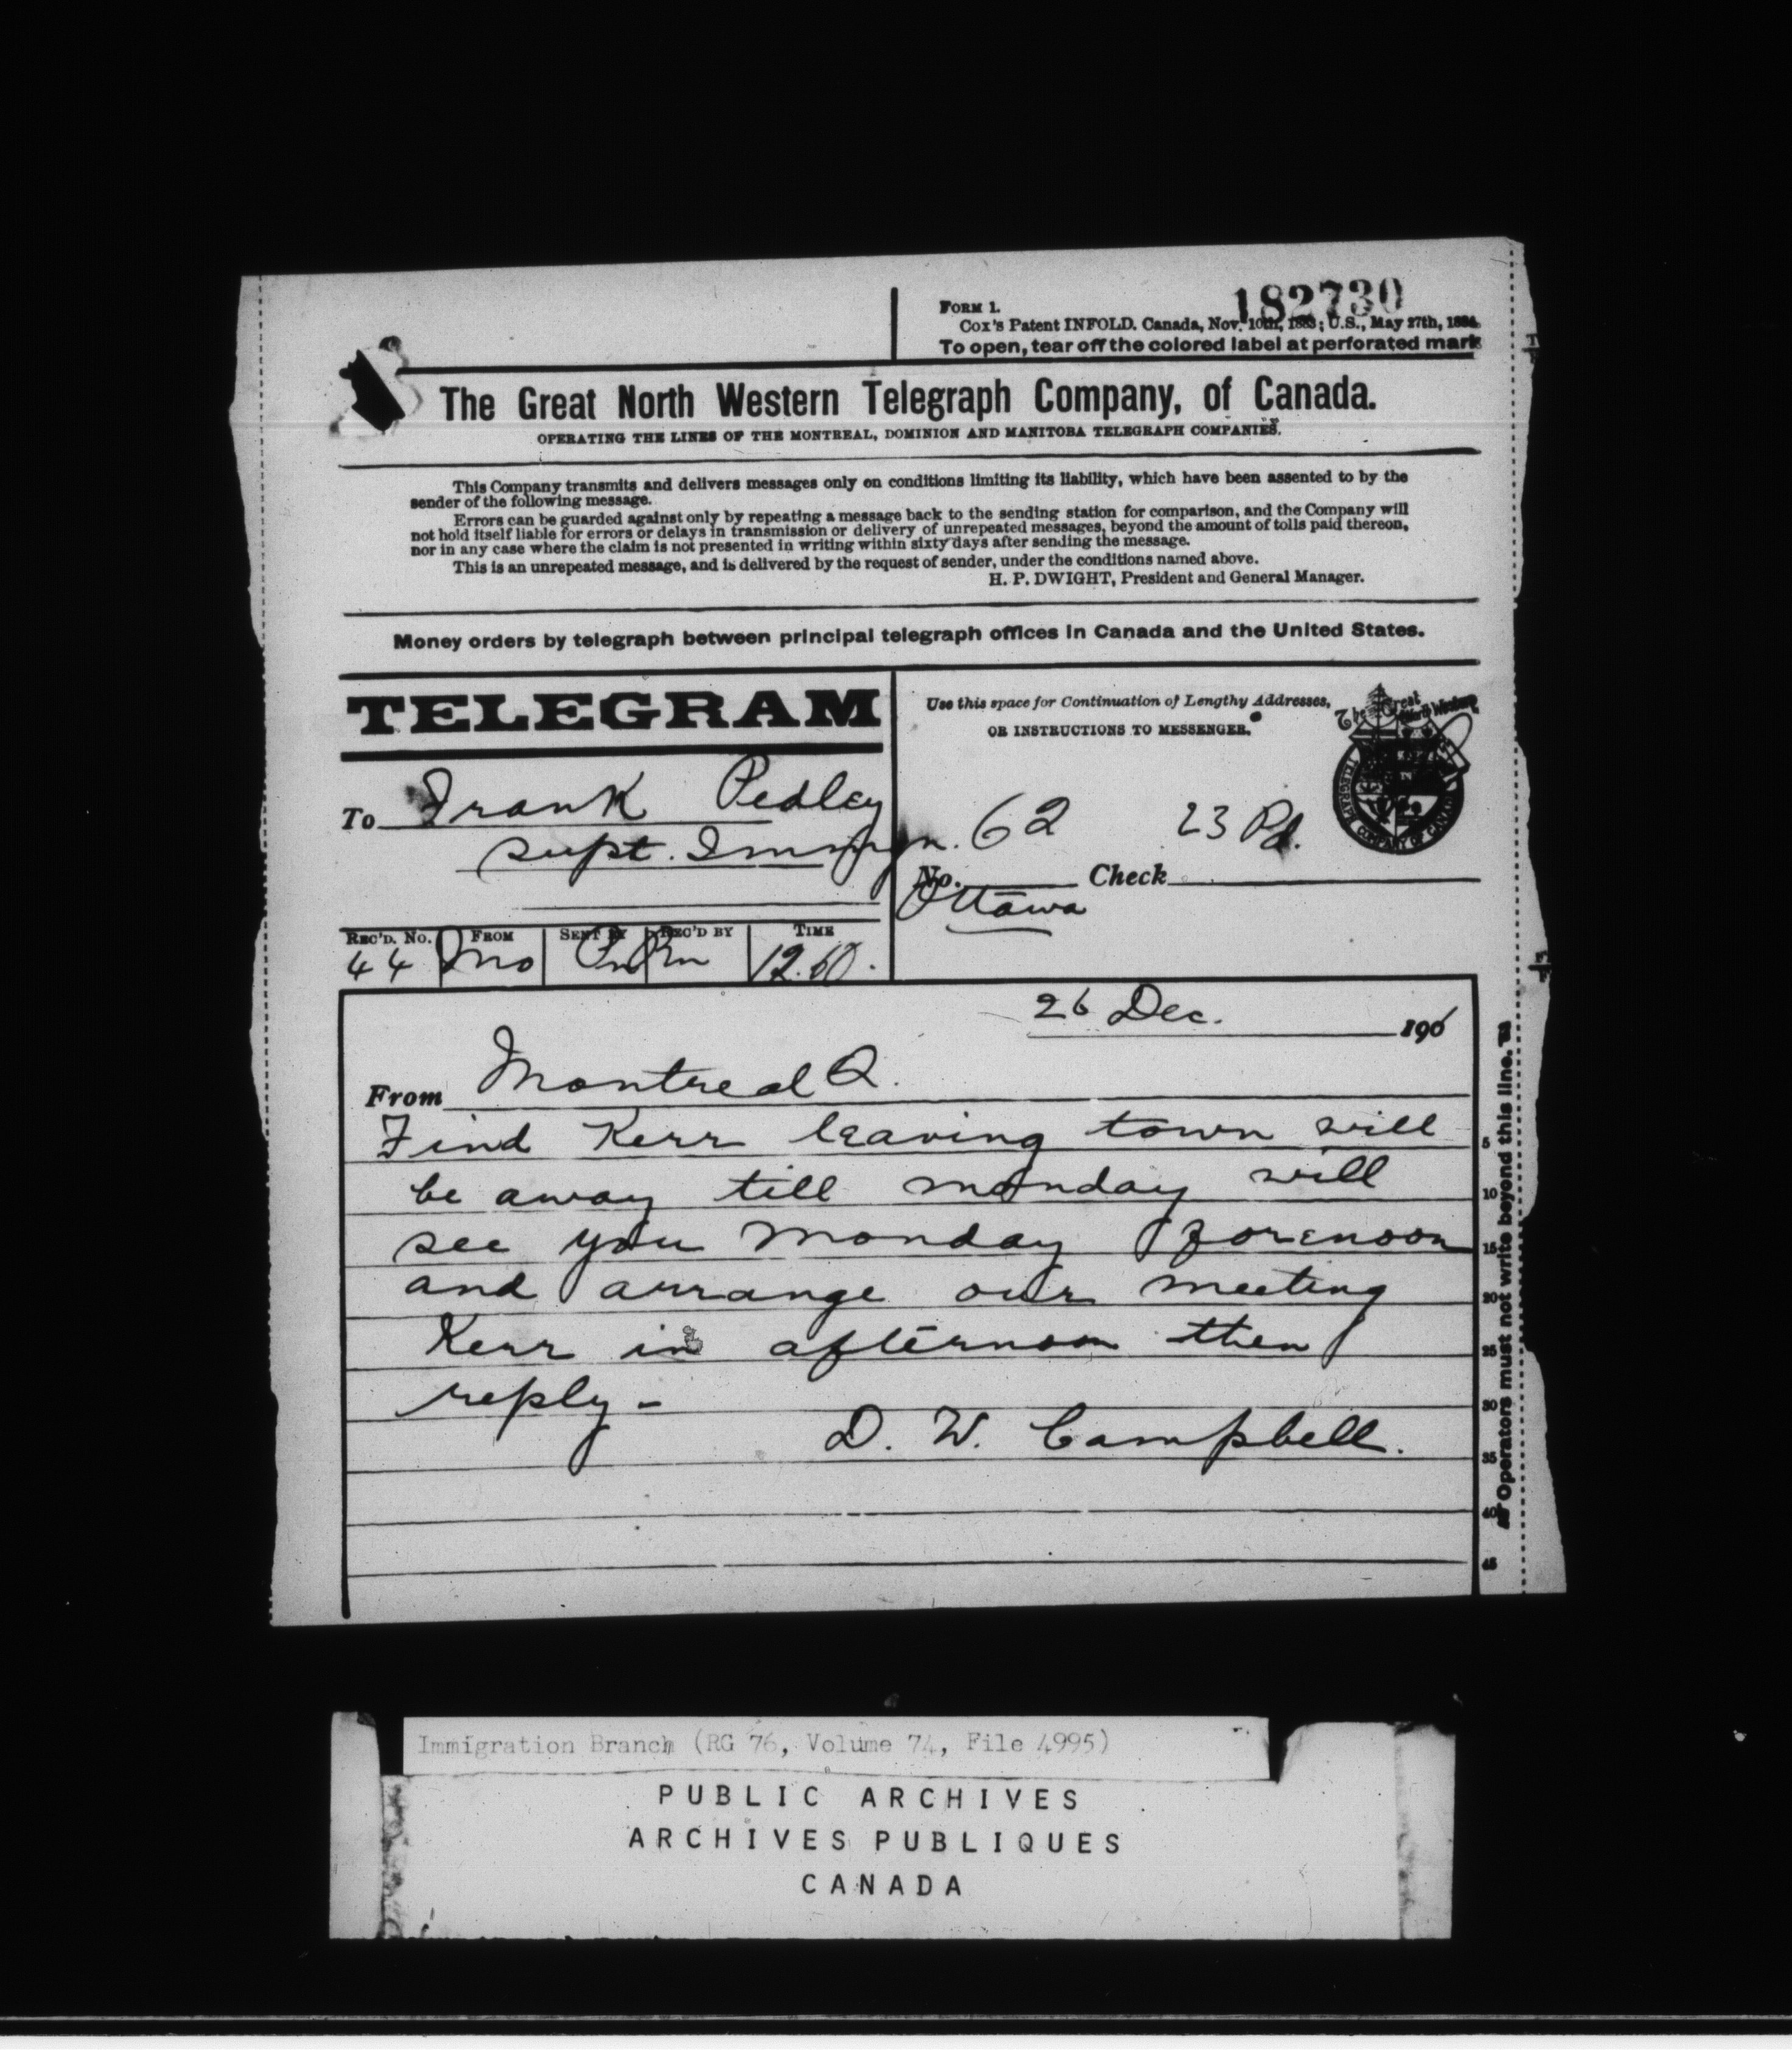 182730
FORM 1.
Cox's Patent INFOLD. Canada, Nov. 10th, 1883; U.S., May 27th, 1884.
To open, tear off the colored label at perforated mark
The Great North Western Telegraph Company, of Canada.
OPERATING THE LINES OF THE MONTREAL, DOMINION AND MANITOBA TELEGRAPH COMPANIES.
This Company transmits and delivers messages only on conditions limiting its liability, which have been assented to by the
sender of the following message.
Errors can be guarded against only by repeating a message back to the sending station for comparison, and the Company will
not hold itself liable for errors or delays in transmission or delivery of unrepeated messages, beyond the amount of tolls paid thereon,
nor in any case where the claim is not presented in writing within sixty days after sending the message.
This is an unrepeated message, and is delivered by the request of sender, under the conditions named above.
H. P. DWIGHT, President and General Manager.
Money orders by telegraph between principal telegraph offices in Canada and the United States.
TELEGRAM
Use this space for Continuation of Lengthy Addresses,
OR INSTRUCTIONS TO MESSENGER.
The Great North Western
TELEGRAPH COMPANY OF CANADA
To Frank Pedley
supt. Immgn.
Ottawa
No. 62 Check 23 Pd.
REC'D. No. FROM SENT BY REC'D BY TIME
44 Mo
26 Dec. 190
From Montreal Q.
Find Kerr leaving town will
be away till monday will
see you monday forenoon
and arrange our meeting
Kerr in afternoon then
reply -
D. W. Campbell.
5
10
15
20
25
30
35
40
45
Operators must not write beyond this line.
Immigration Branch (RG 76, Volume 74, File 4995)
PUBLIC ARCHIVES
ARCHIVES PUBLIQUES
CANADA